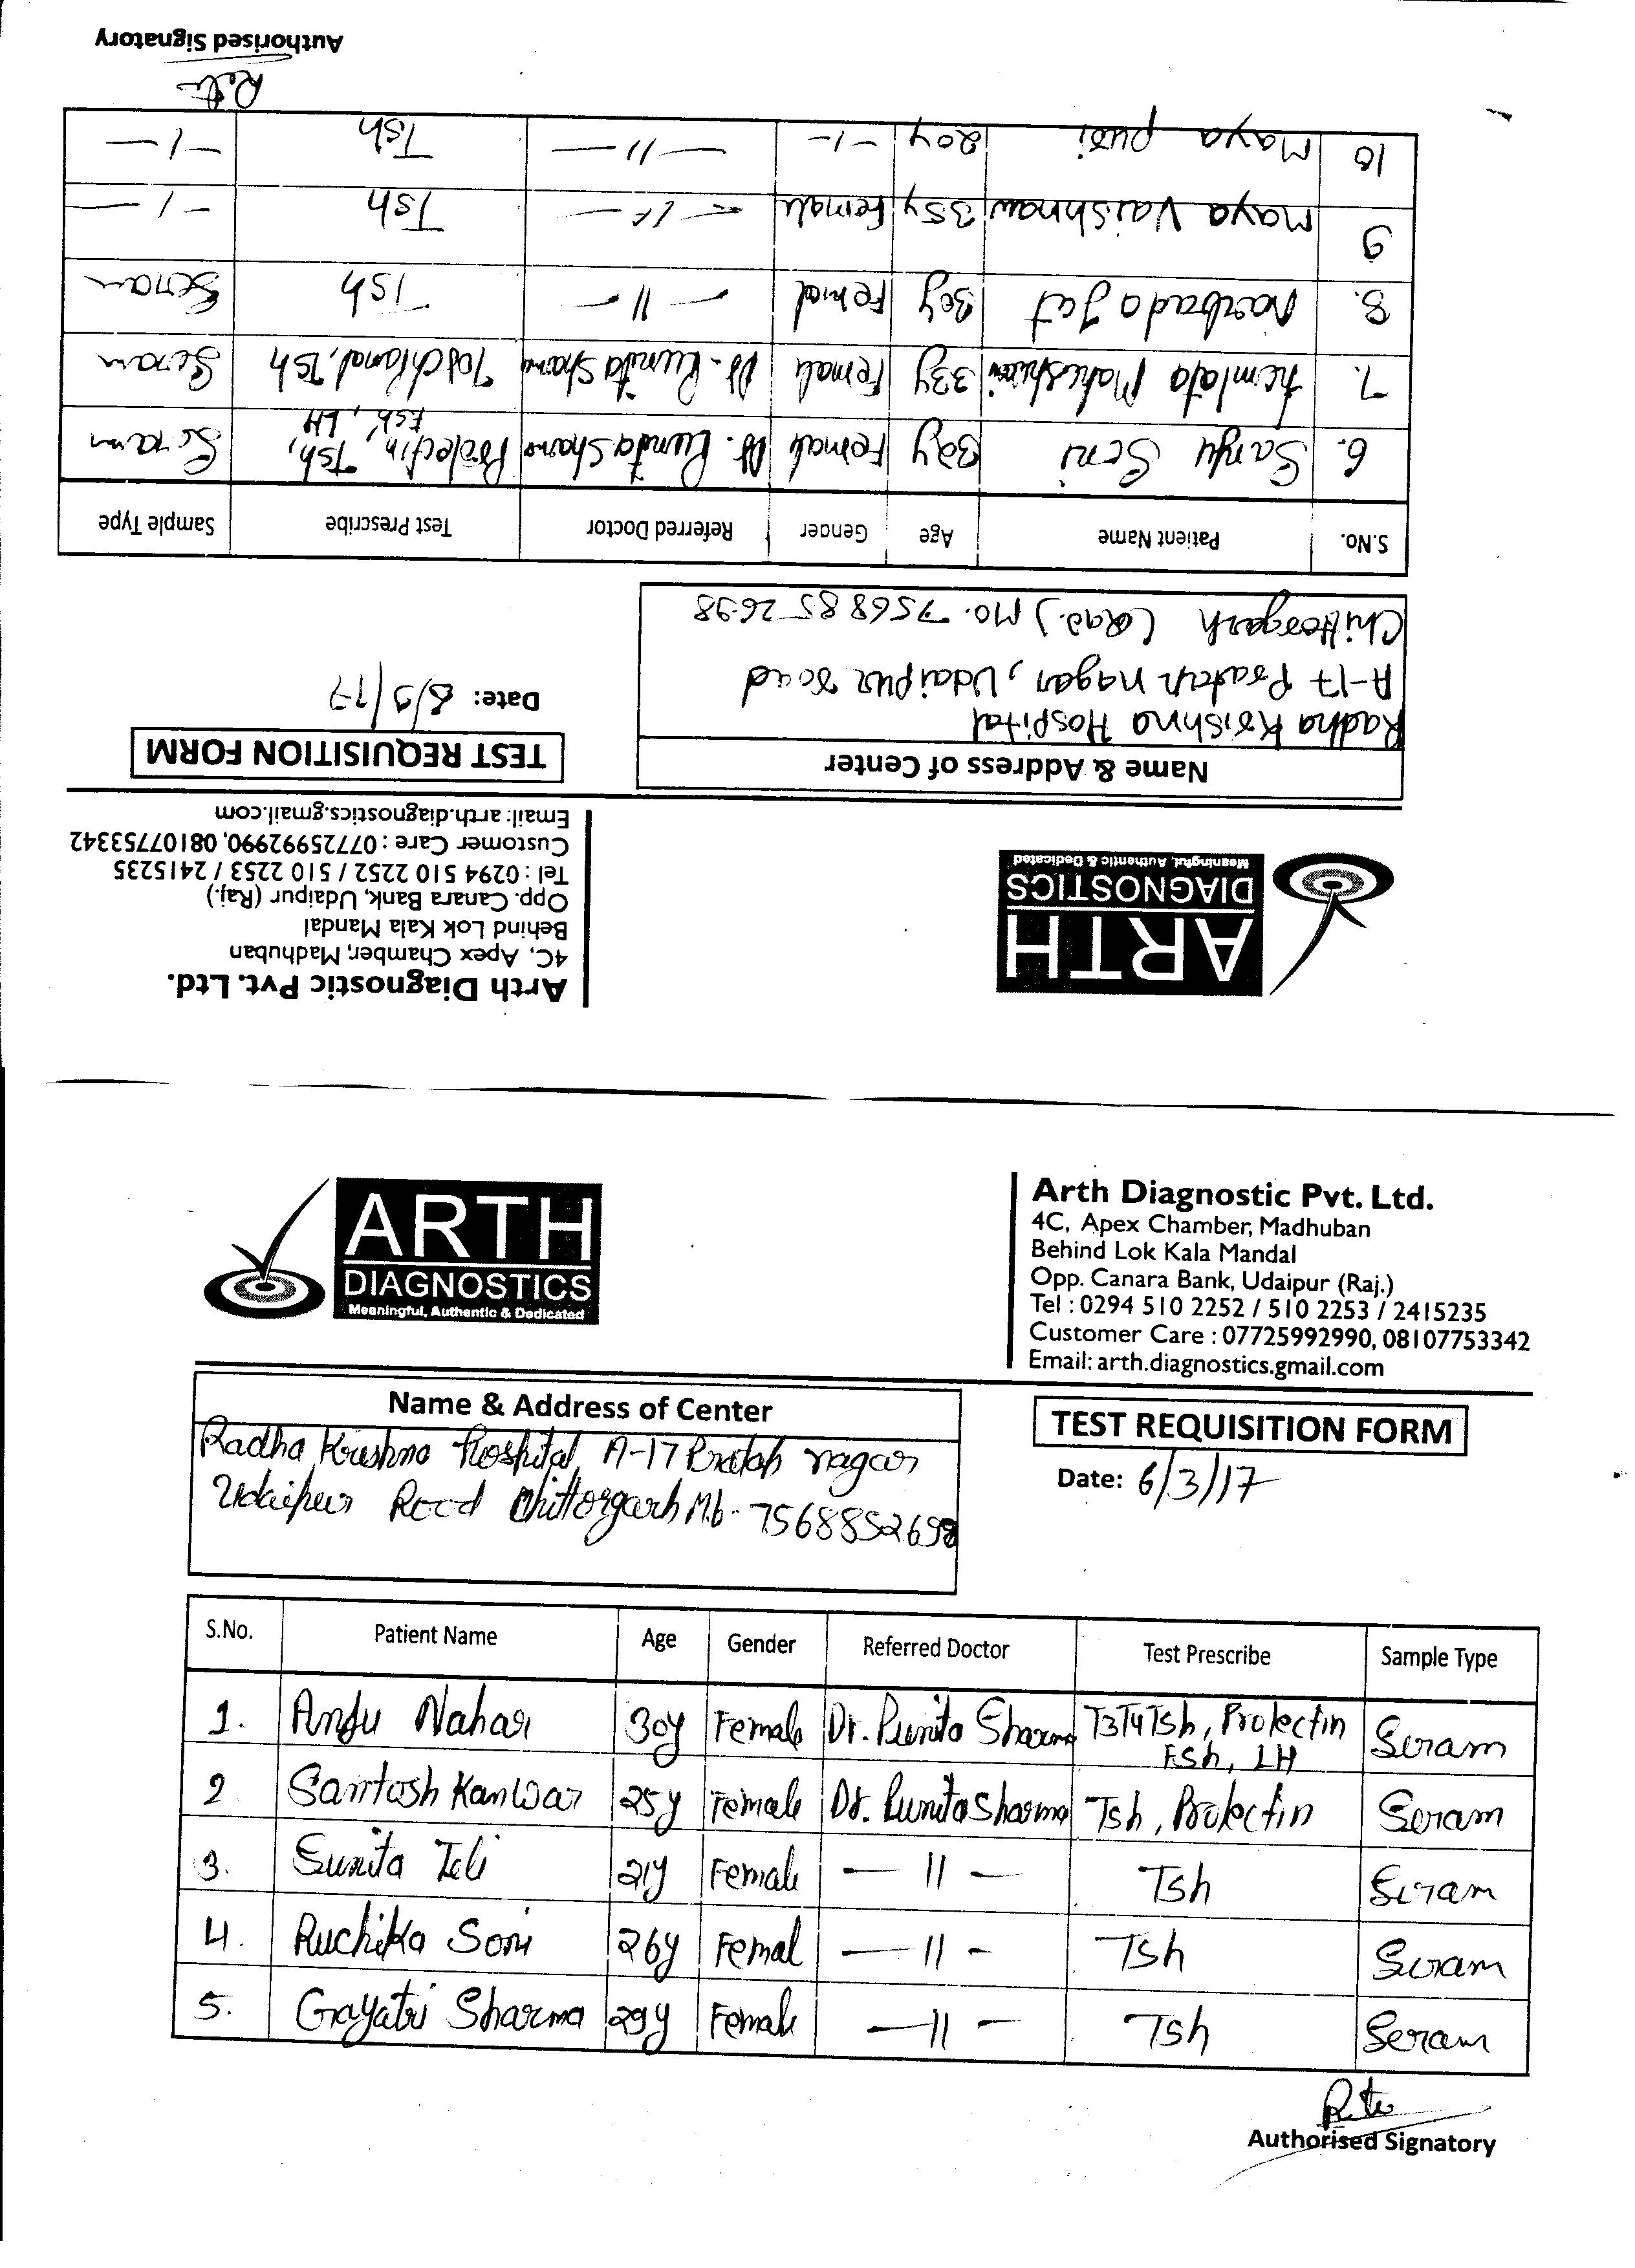 Authorised Signatory
10 Maya puri 20y -1- -11- Tsh -1-
9 Maya Vaishnaw 35y Female -11- Tsh -1-
8. Narbada Jat 30y Femal -11- Tsh Seram
7. Hemlata Maheshwari 33y Female Dr. Punita Sharma Tsh Seram
6. Sanju Seni 32y Female Dr. Punita Sharma Prolectin, Tsh, Seram
Fsh, LH
S.No. Patient Name Age Gender Referred Doctor Test Prescribe Sample Type
Radha Krishna Hospital
A-17 Pratap nagar, Udaipur road
Chittorgarh (Raj.) Mo. 7568852698
Date: 6/3/17
TEST REQUISITION FORM
Name & Address of Center
Arth Diagnostic Pvt. Ltd.
4C, Apex Chamber, Madhuban
Behind Lok Kala Mandal
Opp. Canara Bank, Udaipur (Raj.)
Tel : 0294 510 2252 / 510 2253 / 2415235
Customer Care : 07725992990, 08107753342
Email: arth.diagnostics.gmail.com
ARTH
DIAGNOSTICS
Meaningful, Authentic & Dedicated
ARTH
DIAGNOSTICS
Meaningful, Authentic & Dedicated
Arth Diagnostic Pvt. Ltd.
4C, Apex Chamber, Madhuban
Behind Lok Kala Mandal
Opp. Canara Bank, Udaipur (Raj.)
Tel : 0294 510 2252 / 510 2253 / 2415235
Customer Care : 07725992990, 08107753342
Email: arth.diagnostics.gmail.com
Name & Address of Center
Radha Krishna Hospital, A-17 Pratap nagar
Udaipur Rood Chittorgarh Mb- 7568852698
TEST REQUISITION FORM
Date: 6/3/17
S.No. Patient Name Age Gender Referred Doctor Test Prescribe Sample Type
1. Anju Nahar 30y Female Dr. Punita Sharma T3T4Tsh, Prolectin Seram
Fsh, LH
2 Santosh Kanwar 25y Female Dr. Punita Sharma Tsh, Prolectin Seram
3. Sunita Teli 21y Female -11- Tsh Seram
4. Ruchika Soni 26y Femal -11- Tsh Seram
5. Gayatri Sharma 29y Female -11- Tsh Seram
Authorised Signatory